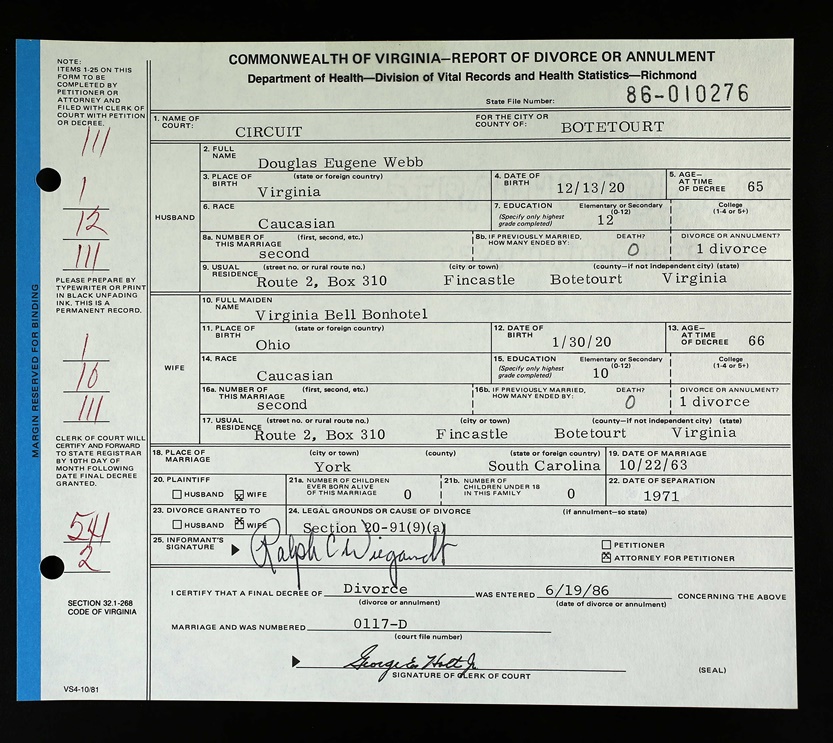 COMMONWEALTH OF VIRGINIA—REPORT OF DIVORCE OR ANNULMENT
Department of Health—Division of Vital Records and Health Statistics—Richmond
State File Number: 86-010276
NOTE:
ITEMS 1-25 ON THIS
FORM TO BE
COMPLETED BY
PETITIONER OR
ATTORNEY AND
FILED WITH CLERK OF
COURT WITH PETITION
OR DECREE.
111
1
12
111
PLEASE PREPARE BY
TYPEWRITER OR PRINT
IN BLACK UNFADING
INK. THIS IS A
PERMANENT RECORD.
1
10
111
CLERK OF COURT WILL
CERTIFY AND FORWARD
TO STATE REGISTRAR
BY 10TH DAY OF
MONTH FOLLOWING
DATE FINAL DECREE
GRANTED.
541
2
SECTION 32.1-268
CODE OF VIRGINIA
VS4-10/81
MARGIN RESERVED FOR BINDING
1. NAME OF COURT: CIRCUIT FOR THE CITY OR COUNTY OF: BOTETOURT
HUSBAND
2. FULL NAME Douglas Eugene Webb
3. PLACE OF BIRTH (state or foreign country) Virginia 4. DATE OF BIRTH 12/13/20 5. AGE— AT TIME OF DECREE 65
6. RACE Caucasian 7. EDUCATION (Specify only highest grade completed) Elementary or Secondary (0-12) 12 College (1-4 or 5+)
8a. NUMBER OF THIS MARRIAGE (first, second, etc.) second 8b. IF PREVIOUSLY MARRIED, HOW MANY ENDED BY: DEATH? 0 DIVORCE OR ANNULMENT? 1 divorce
9. USUAL RESIDENCE (street no. or rural route no.) (city or town) (county—if not independent city) (state)
Route 2, Box 310 Fincastle Botetourt Virginia
WIFE
10. FULL MAIDEN NAME Virginia Bell Bonhotel
11. PLACE OF BIRTH (state or foreign country) Ohio 12. DATE OF BIRTH 1/30/20 13. AGE— AT TIME OF DECREE 66
14. RACE Caucasian 15. EDUCATION (Specify only highest grade completed) Elementary or Secondary (0-12) 10 College (1-4 or 5+)
16a. NUMBER OF THIS MARRIAGE (first, second, etc.) second 16b. IF PREVIOUSLY MARRIED, HOW MANY ENDED BY: DEATH? 0 DIVORCE OR ANNULMENT? 1 divorce
17. USUAL RESIDENCE (street no. or rural route no.) (city or town) (county—if not independent city) (state)
Route 2, Box 310 Fincastle Botetourt Virginia
18. PLACE OF MARRIAGE (city or town) (county) (state or foreign country) York South Carolina 19. DATE OF MARRIAGE 10/22/63
20. PLAINTIFF HUSBAND X WIFE 21a. NUMBER OF CHILDREN EVER BORN ALIVE OF THIS MARRIAGE 0 21b. NUMBER OF CHILDREN UNDER 18 IN THIS FAMILY 0 22. DATE OF SEPARATION 1971
23. DIVORCE GRANTED TO HUSBAND X WIFE 24. LEGAL GROUNDS OR CAUSE OF DIVORCE (if annulment—so state) Section 20-91(9)(a)
25. INFORMANT'S SIGNATURE Ralph C Wiegandt PETITIONER X ATTORNEY FOR PETITIONER
I CERTIFY THAT A FINAL DECREE OF Divorce WAS ENTERED 6/19/86 CONCERNING THE ABOVE
(divorce or annulment) (date of divorce or annulment)
MARRIAGE AND WAS NUMBERED 0117-D
(court file number)
George E Holt Jr.
SIGNATURE OF CLERK OF COURT (SEAL)